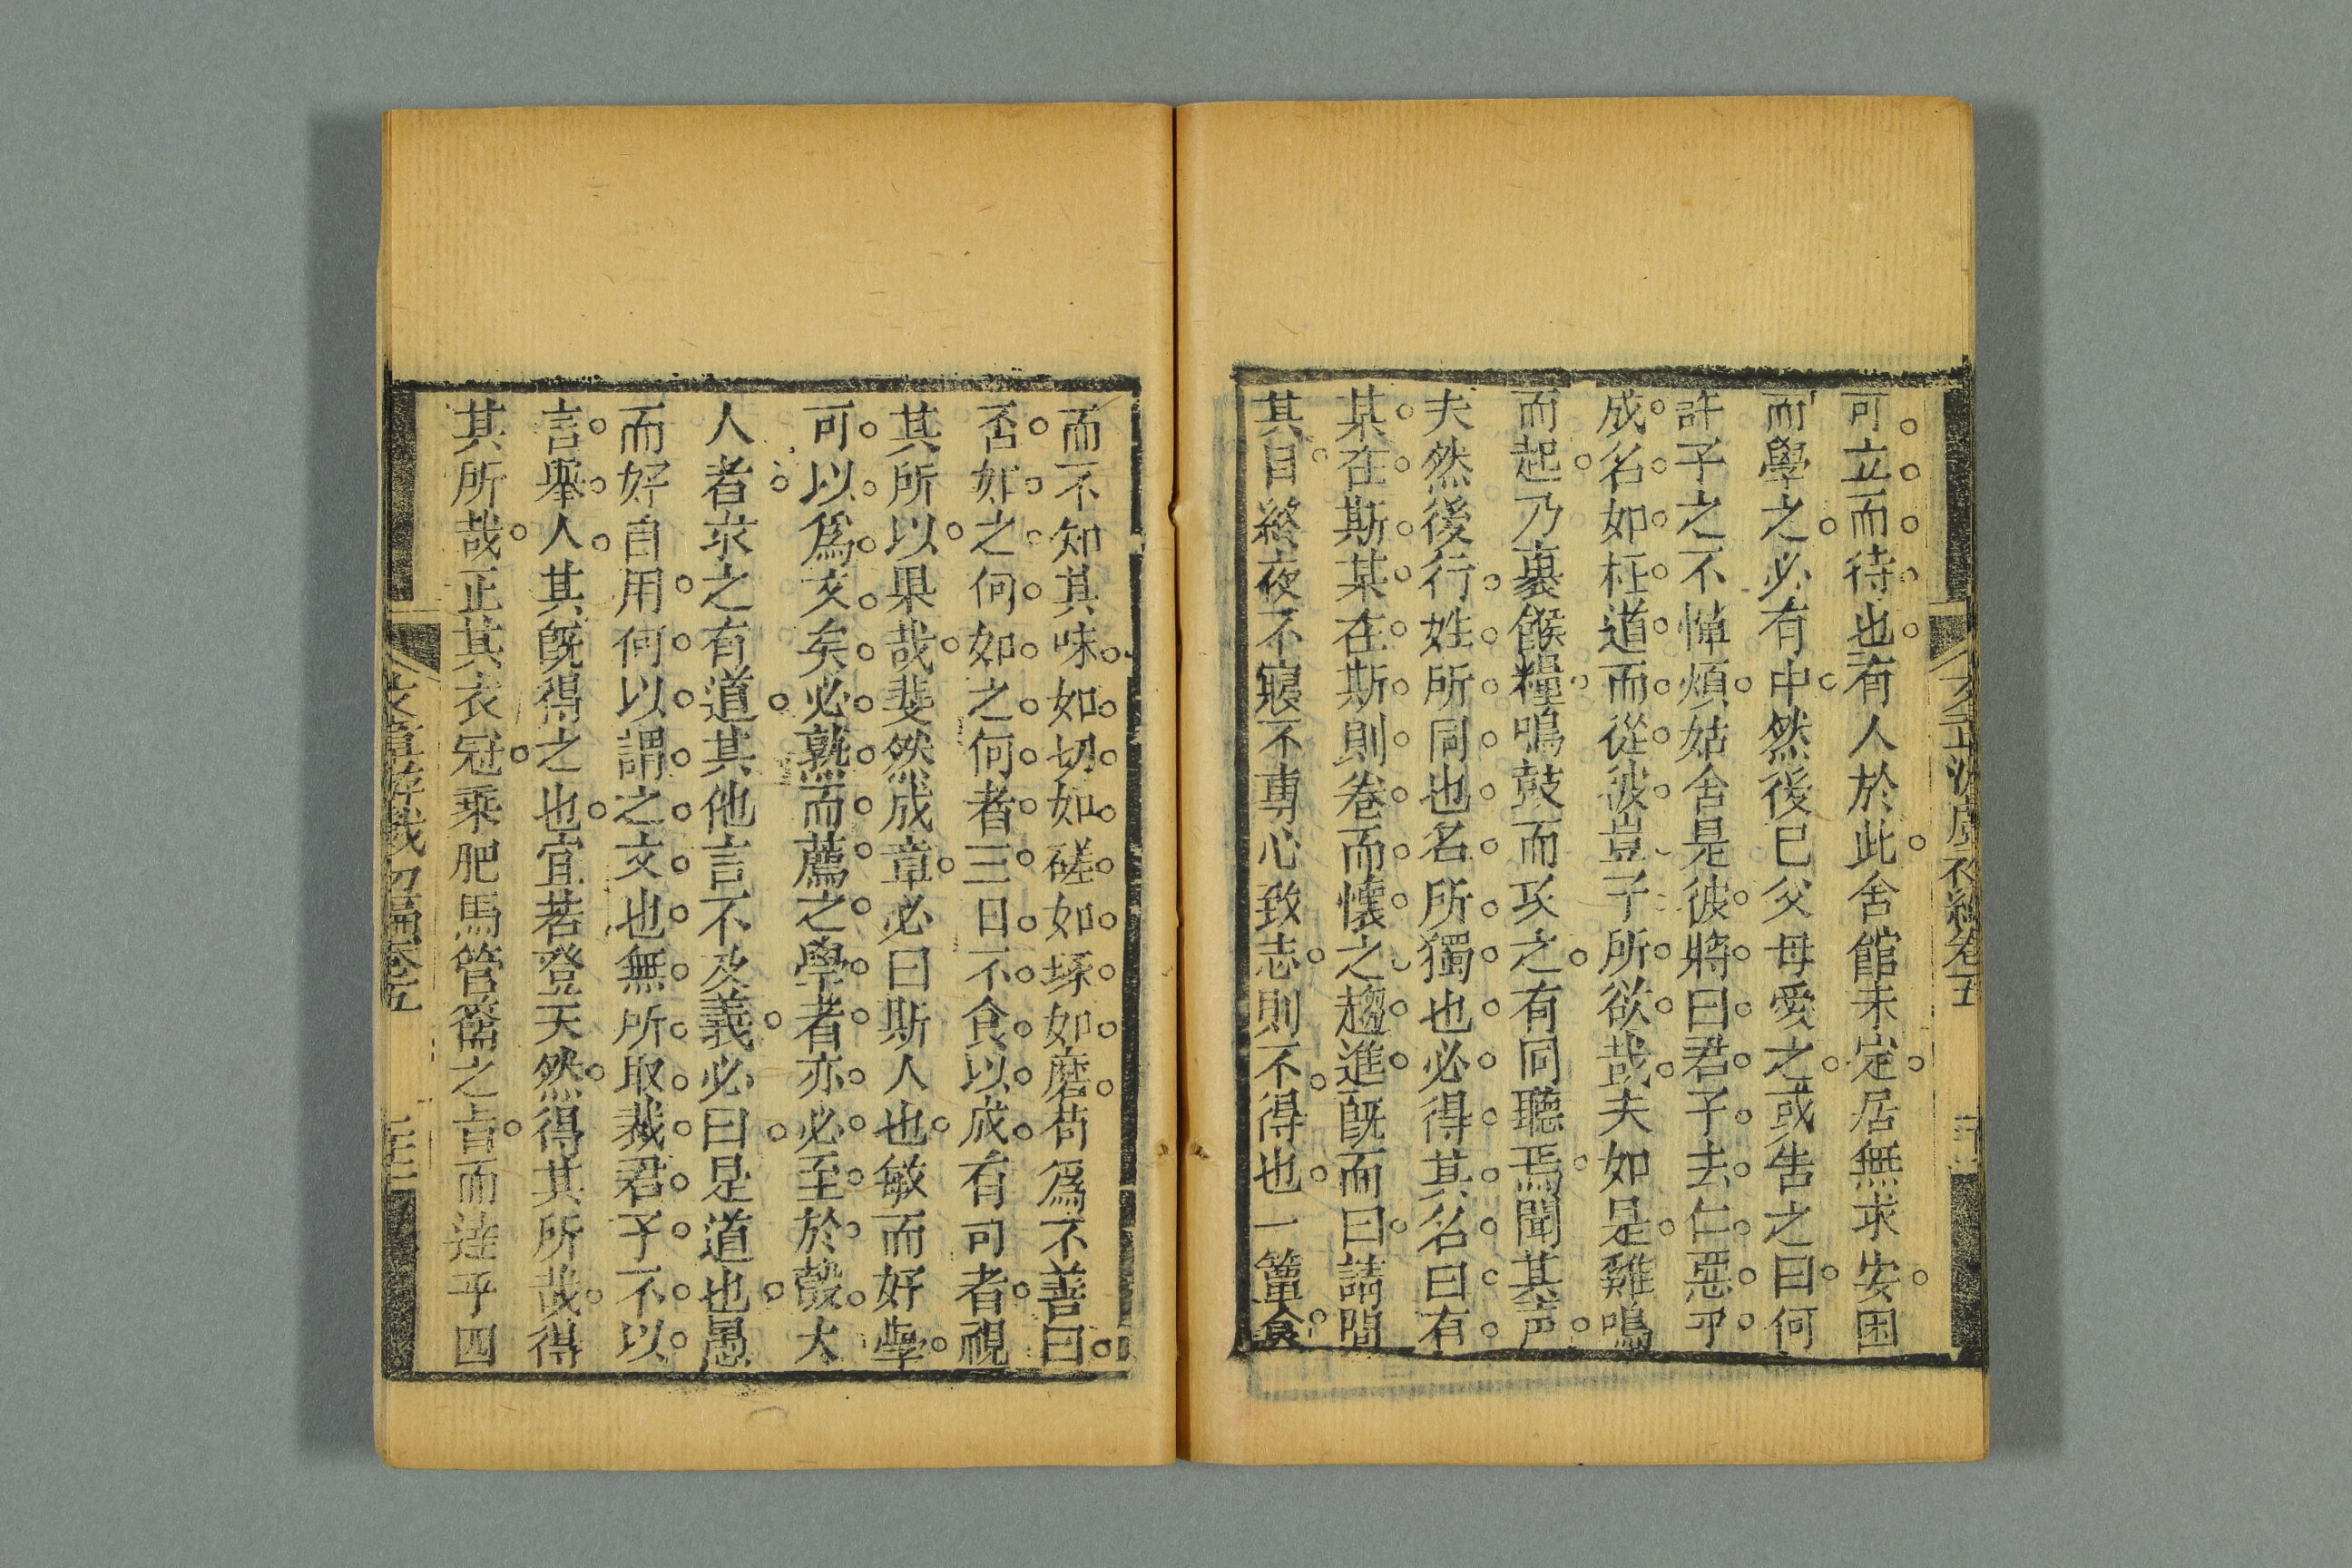 可立而待也有人於此舍館未定居無求安困
而學之必有中然後已父母愛之或告之曰何
許子之不憚煩姑舍是彼將曰君子去仁惡乎
成名如枉道而從彼豈子所欲哉夫如是雞鳴
而起乃裹餱糧鳴鼓而攻之有同聽焉聞其声
夫然後行姓所同也名所獨也必得其名曰有
某在斯某在斯則卷而懷之趨進既而曰請問
其目終夜不寢不專心致志則不得也一簞食
而不知其味如切如磋如琢如磨苟爲不善曰
否如之何如之何者三日不食以成有司者視
其所以果哉斐然成章必曰斯人也敏而好學
可以爲文矣必熟而薦之學者亦必至於彀大
人者求之有道其他言不及義必曰是道也愚
而好自用何以謂之文也無所取裁君子不以
言舉人其既得之也宜若登天然得其所哉得
其所哉正其衣冠乘肥馬管籥之音而達乎四
文章游戲初編卷五